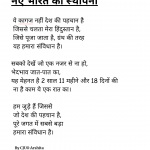 नए भारत की स्थापना
ये कागज नहीं देश की पहचान है
जिससे चलता मेरा हिंदुस्तान है,
जिसे पूजा जाता है, ग्रंथ की तरह
वह हमारा संविधान है।
सबको देखें जो एक नजर से ना हो,
भेदभाव जात-पात का,
यह मेहनत है 2 साल 11 महीने और 18 दिनों की
ना है काम ये एक रात का।
हम जुड़े हैं जिससे
जो देश की पहचान है,
पूरे जगत में सबसे बड़ा
हमारा संविधान है।